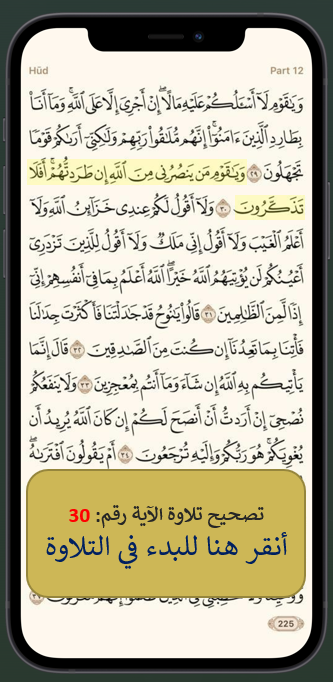 Hūd Part 12
وَيَٰقَوْمِ لَآ أَسْـَٔلُكُمْ عَلَيْهِ مَالًا ۖ إِنْ أَجْرِىَ إِلَّا عَلَى ٱللَّهِ ۚ وَمَآ أَنَا۠
بِطَارِدِ ٱلَّذِينَ ءَامَنُوٓا۟ ۚ إِنَّهُم مُّلَٰقُوا۟ رَبِّهِمْ وَلَٰكِنِّىٓ أَرَىٰكُمْ قَوْمًا
تَجْهَلُونَ ٢٩ وَيَٰقَوْمِ مَن يَنصُرُنِى مِنَ ٱللَّهِ إِن طَرَدتُّهُمْ ۚ أَفَلَا
تَذَكَّرُونَ ٣٠ وَلَآ أَقُولُ لَكُمْ عِندِى خَزَآئِنُ ٱللَّهِ وَلَآ
أَعْلَمُ ٱلْغَيْبَ وَلَآ أَقُولُ إِنِّى مَلَكٌ وَلَآ أَقُولُ لِلَّذِينَ تَزْدَرِىٓ
أَعْيُنُكُمْ لَن يُؤْتِيَهُمُ ٱللَّهُ خَيْرًا ۖ ٱللَّهُ أَعْلَمُ بِمَا فِىٓ أَنفُسِهِمْ ۖ إِنِّىٓ
إِذًا لَّمِنَ ٱلظَّٰلِمِينَ ٣١ قَالُوا۟ يَٰنُوحُ قَدْ جَٰدَلْتَنَا فَأَكْثَرْتَ جِدَٰلَنَا
فَأْتِنَا بِمَا تَعِدُنَآ إِن كُنتَ مِنَ ٱلصَّٰدِقِينَ ٣٢ قَالَ إِنَّمَا
يَأْتِيكُم بِهِ ٱللَّهُ إِن شَآءَ وَمَآ أَنتُم بِمُعْجِزِينَ ٣٣ وَلَا يَنفَعُكُمْ
نُصْحِىٓ إِنْ أَرَدتُّ أَنْ أَنصَحَ لَكُمْ إِن كَانَ ٱللَّهُ يُرِيدُ أَن
يُغْوِيَكُمْ ۚ هُوَ رَبُّكُمْ وَإِلَيْهِ تُرْجَعُونَ ٣٤ أَمْ يَقُولُونَ ٱفْتَرَىٰهُ ۖ
تصحيح تلاوة الآية رقم: 30
أنقر هنا للبدء في التلاوة
225